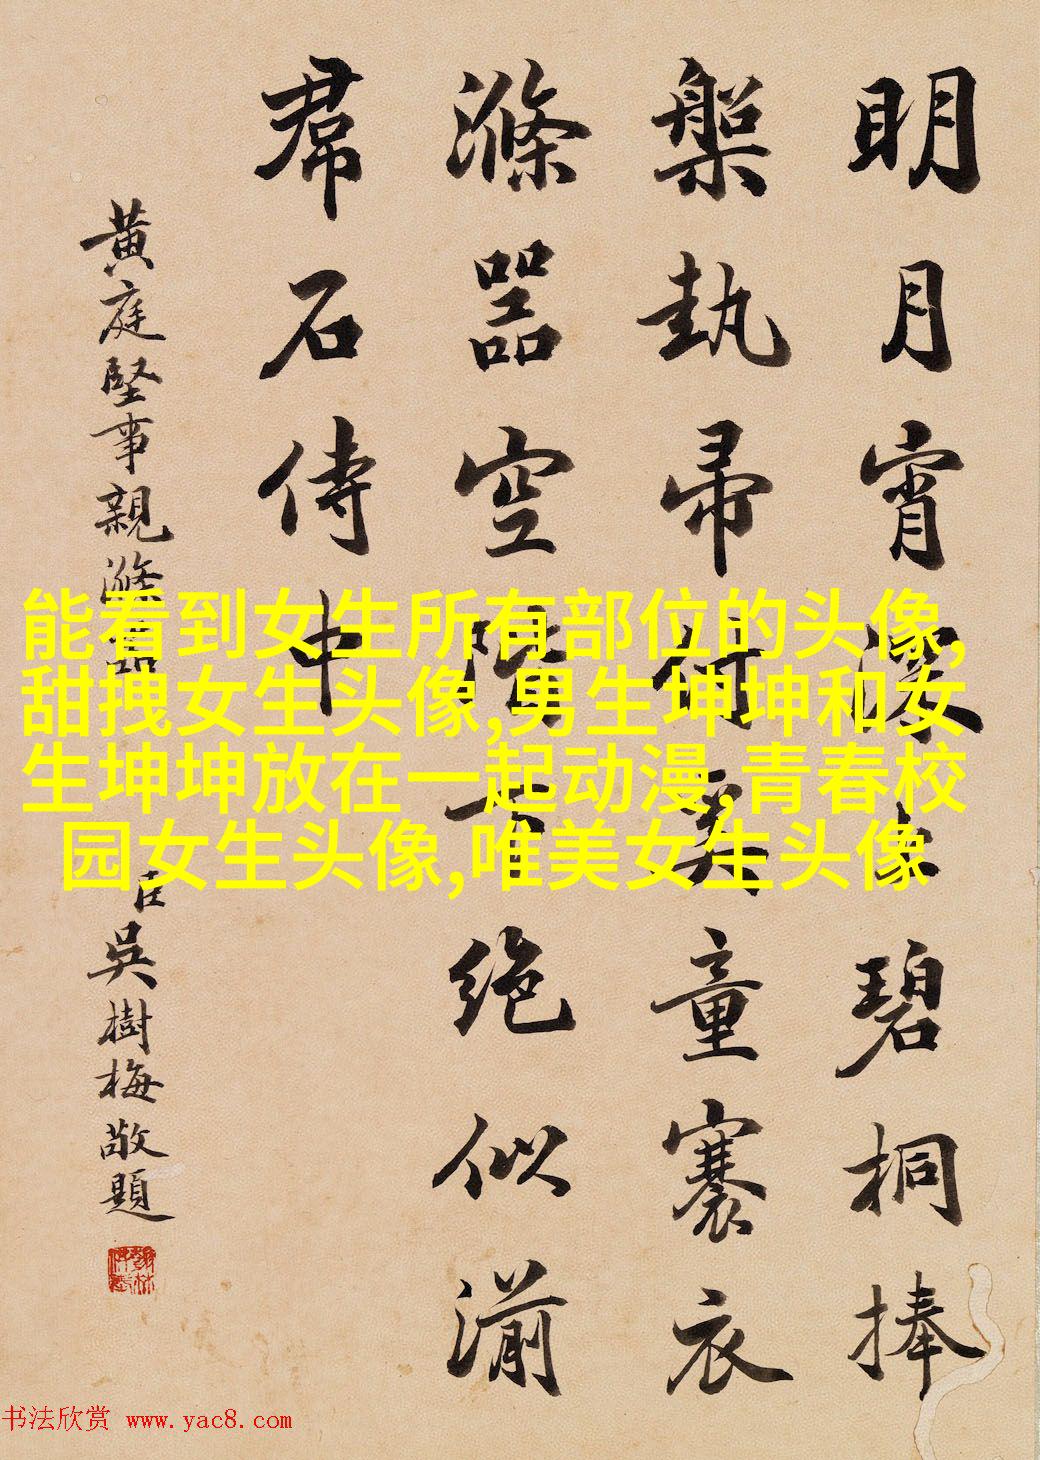 明月宵深碧桐捧
槃執帚付奚童褰衣
滌器空階下絕似湔
帬石傍申
黃庭堅事親滌器
臣吳樹梅敬題
能看到女生所有部位的头像,
甜拽女生头像,男生坤坤和女
生坤坤放在一起动漫,青春校
园女生头像,唯美女生头像
书法欣赏 www.yac8.com